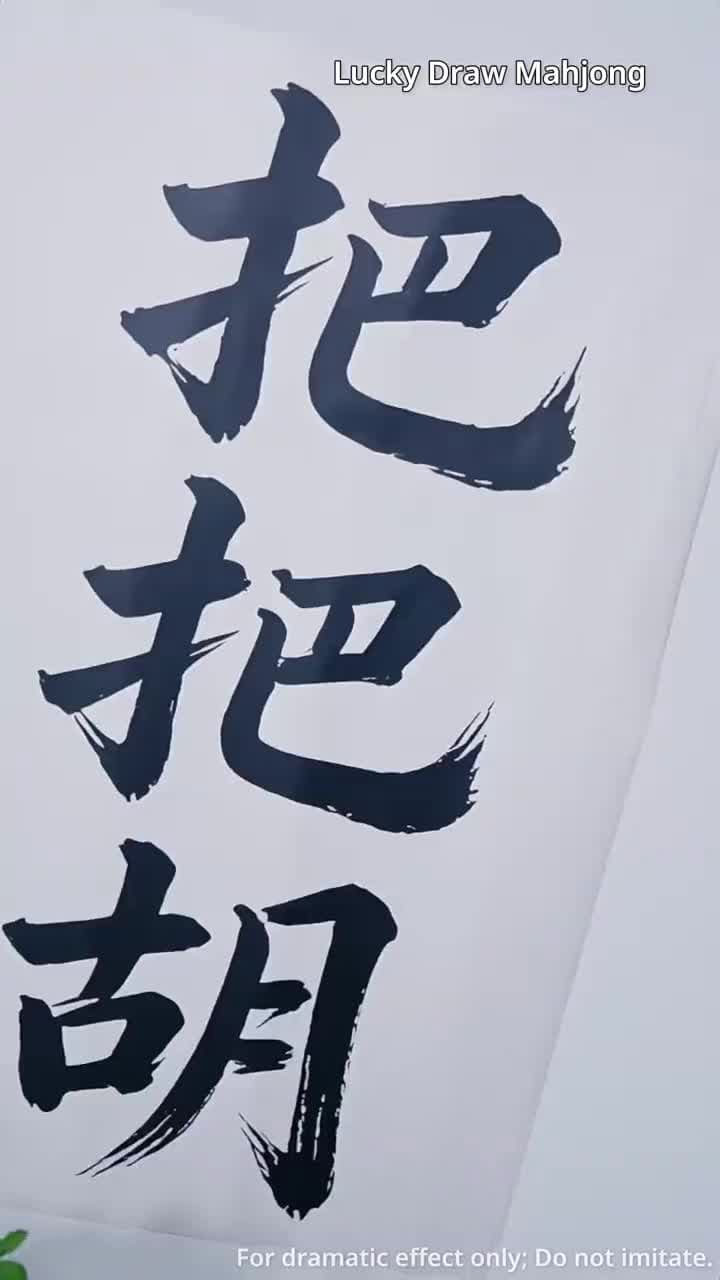 Lucky Draw Mahjong
把
把
胡
For dramatic effect only; Do not imitate.